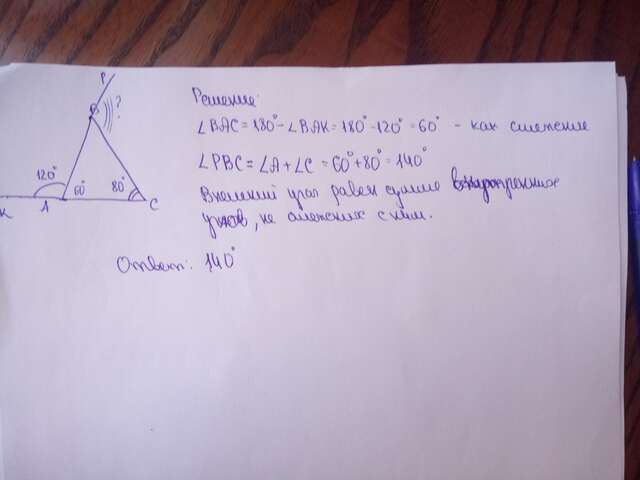 Решение:
∠BAC = 180° - ∠BAK = 180° - 120° = 60° - как смежные
∠PBC = ∠A + ∠C = 60° + 80° = 140°
Внешний угол равен сумме внутренних
углов, не смежных с ним.
Ответ: 140°
P
B
?
120°
60°
80°
K
A
C